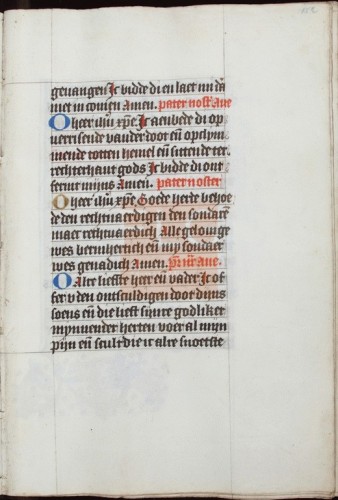 geuangen Ic bidde di en laet mi dar
niet in comen Amen. pater nost̄ Aue
O heer ihū xp̄e. Ic aenbede di op
uerrisende vander doot eñ opclym
mende totten hemel eñ sittende ter
rechterhant gods Ic bidde di ont
fermt mijns Amen. Pater noster
O heer ihū xp̄e Goede herde behoe
de den rechtuaerdigen den sondarē
maet rechtuaerdich Alle geloutge
wes bermhertich eñ my sondaer
wes genadich Amen. pr̄ nr̄ aue.
O Alre liefste heer eñ vader Ic of
fer v den onsculdigen doot dijns
soens eñ die liefte sijnre godliker
mynnender herten voer al mijn
pijn eñ scult die ic alre snoetste